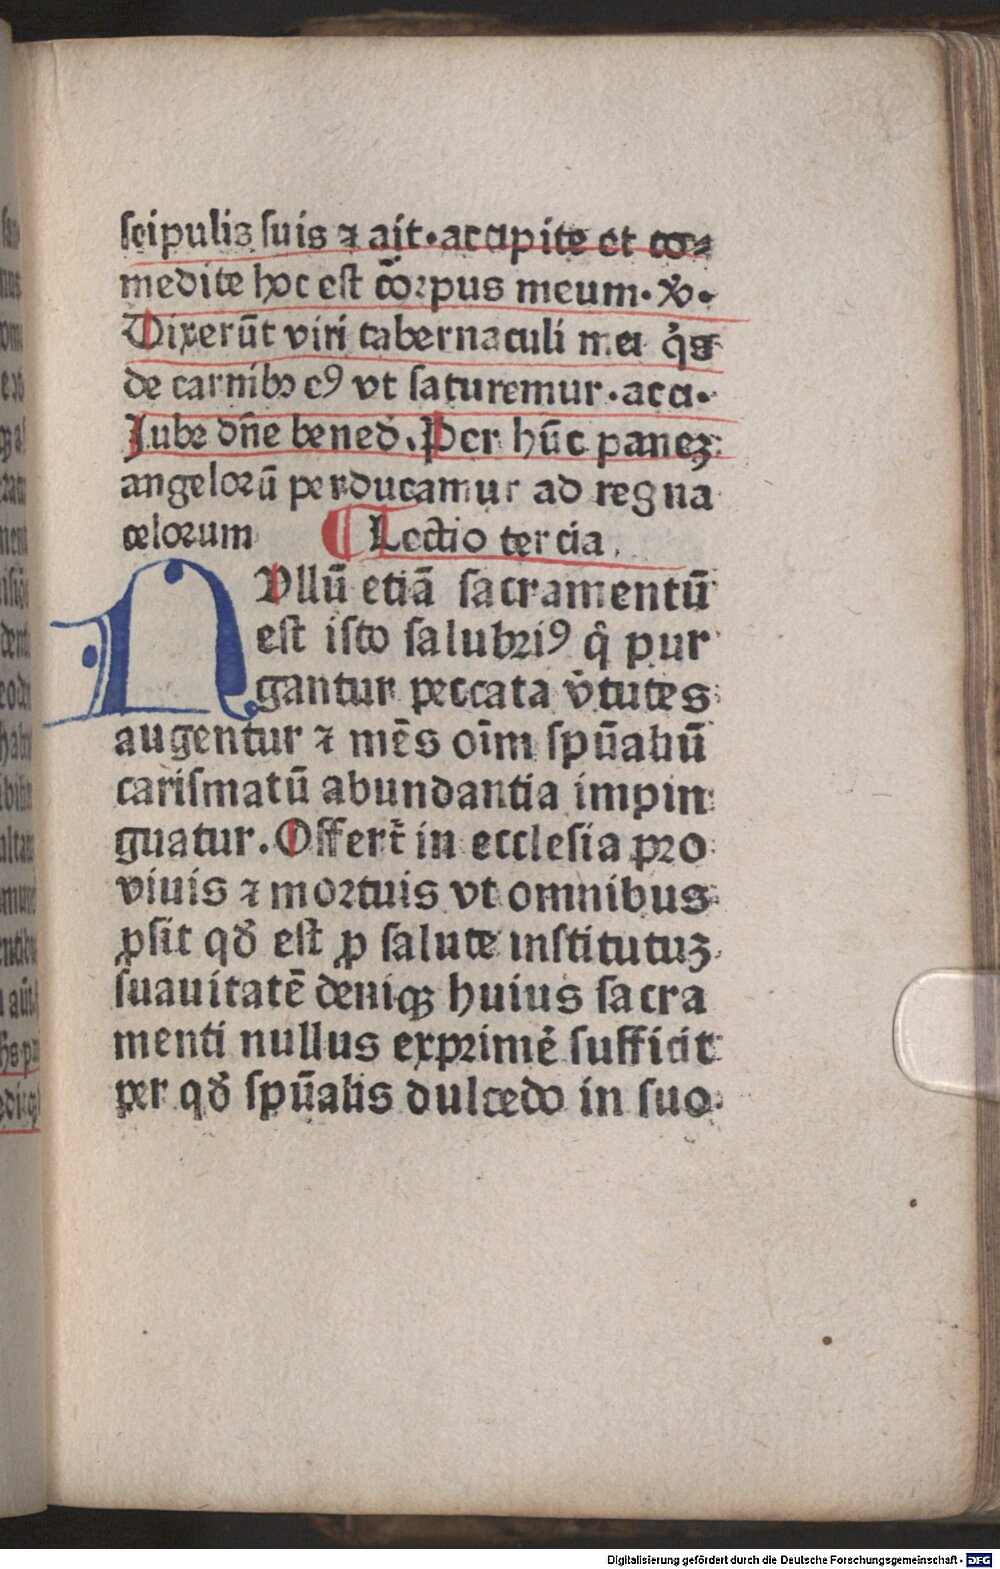 ſcipulis ſuis ⁊ ait·accipite et co⸗
medite hoc eſt cōrpus meum·xͦ·
Dixerūt viri tabernaculi mei q̇s
de carnibꝫ eꝰ vt ſaturemur·acci·
Jube dn̄e bened̄. Per hūc paneꝫ
angelorū perducamur ad regna
celorum ¶ Lectio tercia.
NVllū etiā ſacramentū
eſt iſto ſalubriꝰ q̊ pur
gantur peccata v̓tutes
augentur ⁊ mēs oīm ſpūaliū
cariſmatū abundantia impin
guatur. Offert̄ in eccleſia pro
viuis ⁊ mortuis vt omnibus
ꝓſit qď eſt ꝓ ſalute inſtitutuꝫ
ſuauitatē deniqꝫ huius ſacra
menti nullus exprime᷑ ſufficit
per qď ſpūalis dulcedo in ſuo
Digitalisierung gefördert durch die Deutsche Forschungsgemeinschaft - DFG